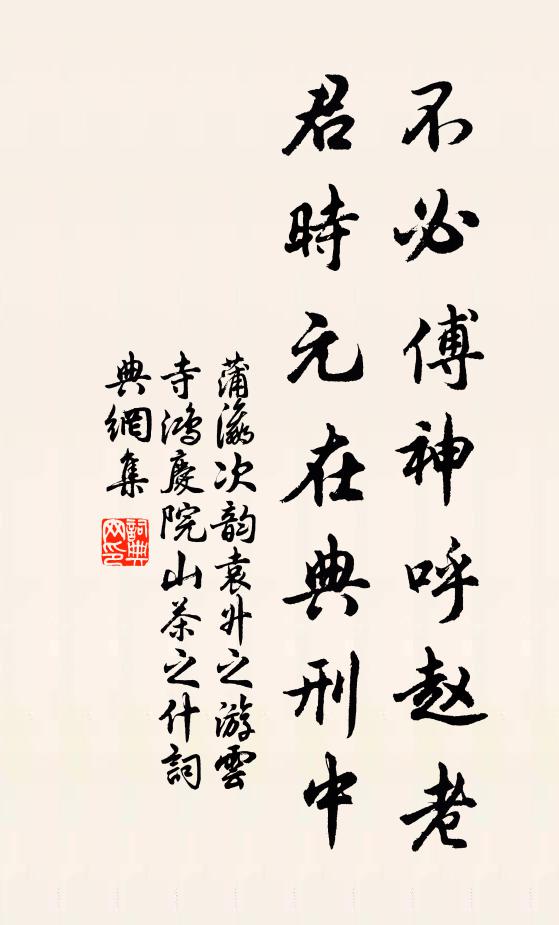 不必傅神呼赵老
君時元在典刑中
蒲瀛次韵袁升之游雲
寺鸿慶院山茶之什詞
典網集
詞典
网印